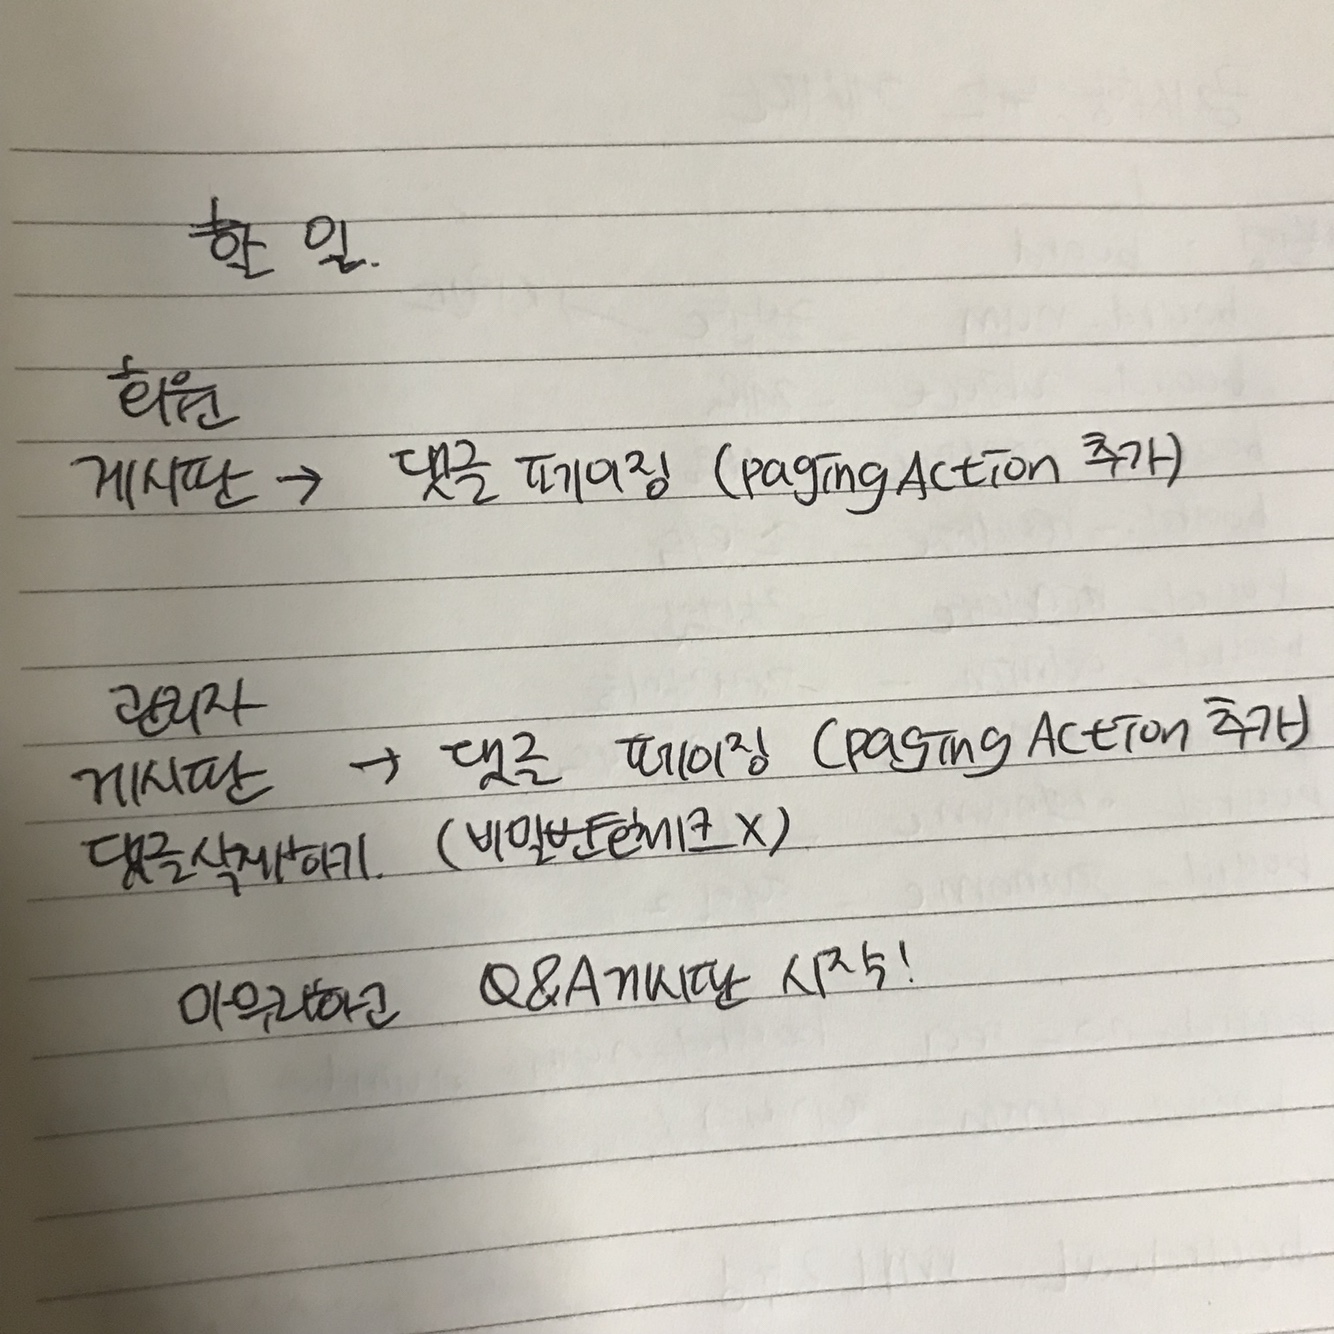 할 일.
회원
게시판 → 댓글 페이징 (pagingAction 추가)
관리자
게시판 → 댓글 페이징 (paging Action 추가)
댓글삭제하기. (비밀번호체크 X)
마무리하고 Q&A게시판 시작!